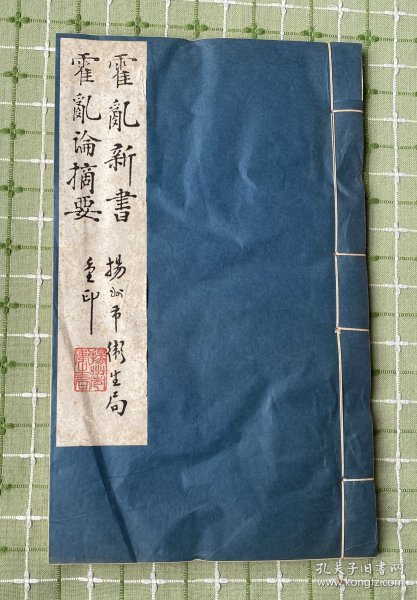 霍亂新書
霍亂論摘要
揚州市衛生局
重印
孔夫子旧书网
www.kongfz.com